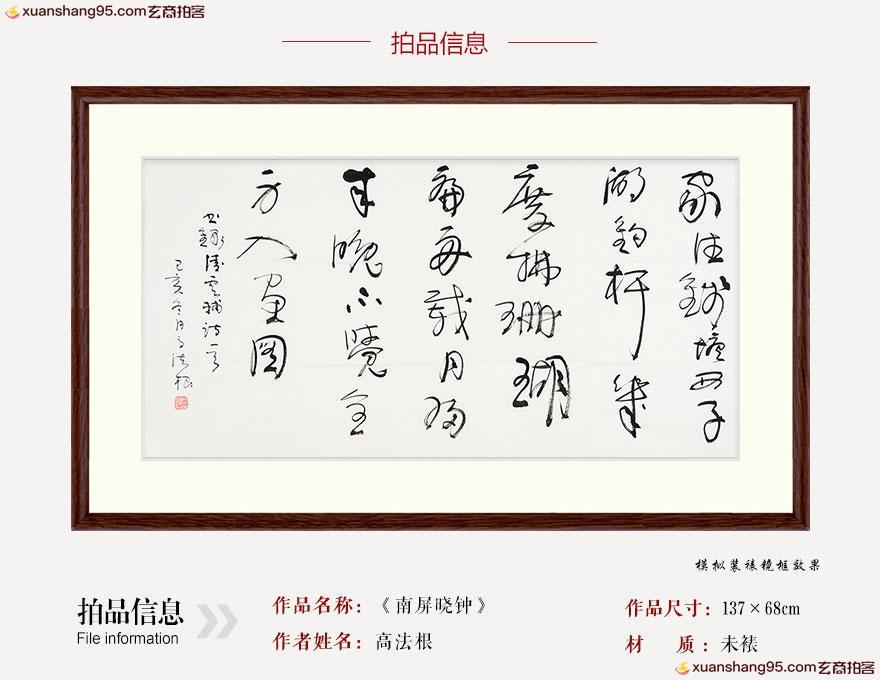 xuanshang95.com玄商拍客
拍品信息
家住錢塘西子
湖釣杆幾
度拂珊瑚
扁舟載月歸
來晚不覺全
身入畫圖
己亥冬月高法根
模拟装裱镜框效果
拍品信息
File information
作品名称：《南屏晓钟》
作者姓名：高法根
作品尺寸：137×68cm
材 质：未裱
xuanshang95.com玄商拍客